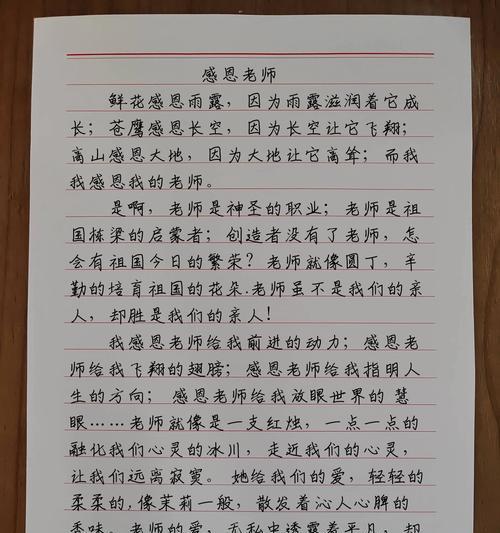 感恩老师
鲜花感恩雨露，因为雨露滋润着它成
长；苍鹰感恩长空，因为长空让它飞翔；
高山感恩大地，因为大地让它高耸；而我
我感恩我的老师。
是啊，老师是神圣的职业；老师是祖
国栋梁的启蒙者；创造者没有了老师，怎
会有祖国今日的繁荣？老师就像圆丁，辛
勤的培育祖国的花朵.老师虽不是我们的亲
人，却胜是我们的亲人！
我感恩老师给我前进的动力；感恩老
师给我飞翔的翅膀；感恩老师给我指明人
生的方向；感恩老师给我放眼世界的慧
眼……老师就像是一支红烛，一点一点的
融化我们心灵的冰川，走近我们的心灵，
让我们远离寂寞。她给我们的爱，轻轻的
柔柔的,像茉莉一般，散发着沁人心脾的
香味。老师的爱，无私中透露着平凡，却